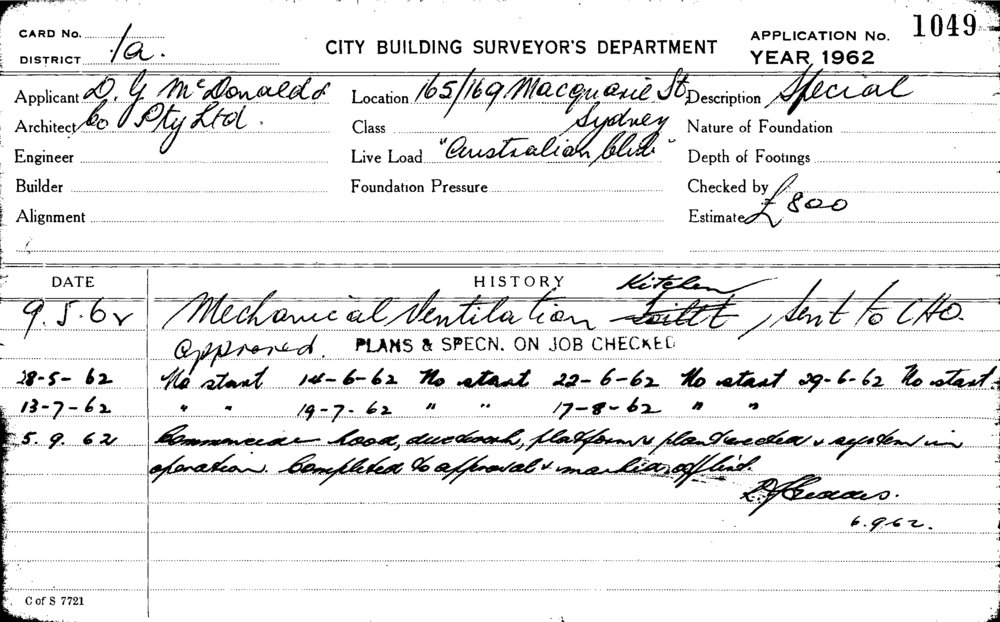 CARD No. CITY BUILDING SURVEYOR'S DEPARTMENT APPLICATION No. 1049
DISTRICT 1a. YEAR 1962
Applicant D. G McDonald & Location 165/169 Macquarie St, Description Special
Architect Co Pty Ltd. Class Sydney Nature of Foundation
Engineer Live Load "Australian Club" Depth of Footings
Builder Foundation Pressure Checked by
Alignment Estimate £800
DATE HISTORY Kitchen
9.5.62 Mechanical Ventilation Toilet, sent to CHO.
approved. PLANS & SPECN. ON JOB CHECKED
28-5-62 No start 14-6-62 No start 22-6-62 No start 29-6-62 No start.
13-7-62 " " 19-7-62 " " 17-8-62 " "
5.9.62 Commenced hood, ductwork, platform & plant erected & system in
operation. Completed to approval & marked off list.
6.9.62.
C of S 7721